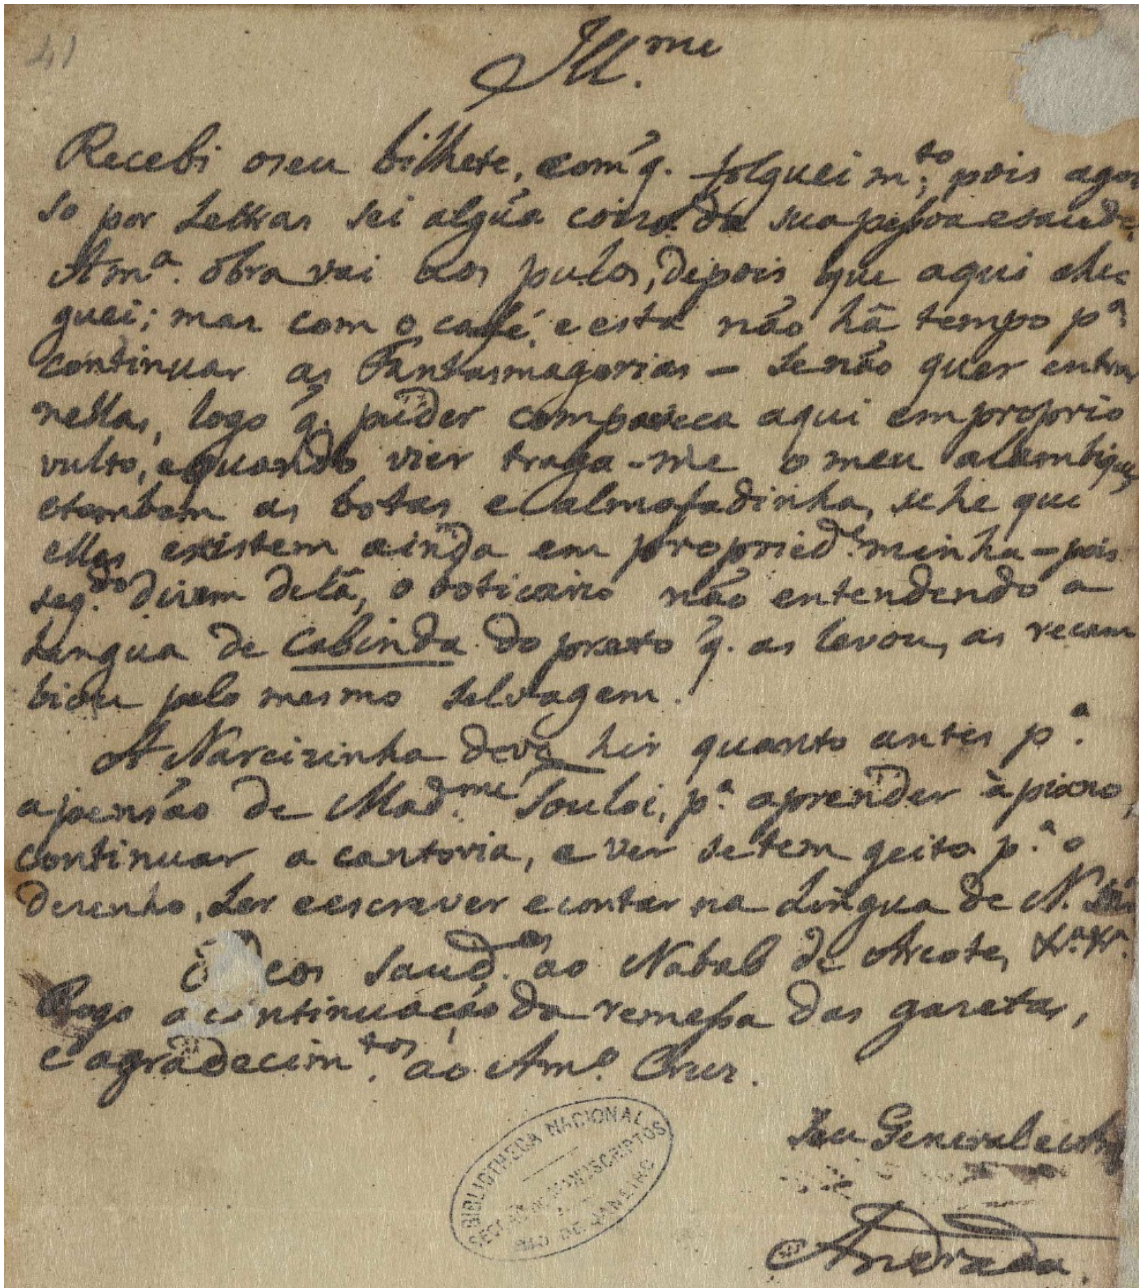 41
Ill.me
Recebi oseu bilhete, com q. folguei m.to, pois agor
so por Letras sei algũa coisa da sua pessoa esaude.
A m.ª obra vai aos pulos, depois que aqui che-
guei; mas com o café, e esta não hà tempo p.ª
continuar as Fantasmagorias - Se não quer entrar
nellas, logo q. puder compareca aqui em proprio
vulto, equando vier traga-me o meu alambique,
etambem as botas e almofadinha, se he que
ellas existem ainda em propried.e minha - pois
seg.do dizem de lá, o boticario não entendendo a
Lingua de Cabinda do preto q. as levou, as recam
biou pelo mesmo selvagem.
A Narcizinha deve hir quanto antes p.ª
a pensão de Mad.me Touloi, p.ª aprender à piano,
continuar a cantoria, e ver se tem geito p.ª o
dezenho, Ler eescrever econtar na Lingua de N.
cos saud.es ao Nabab de Arcote,
Rogo a continuação da remessa das gazetas,
e agradecim.tos ao Am.º Cruz.
Seu General e
Andrada
BIBLIOTHECA NACIONAL
SECÇÃO DE MANUSCRIPTOS
RIO DE JANEIRO